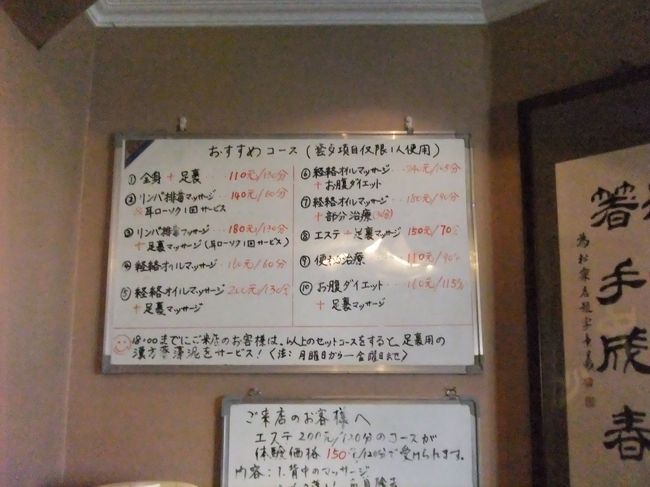 おすすめコース (套夕項目仅限1人使用)
① 全身 + 足裏 110元/130分
② リンパ排毒マッサージ 140元/60分
& 耳ローソク1回サービス
③ リンパ排毒マッサージ 180元/130分
+ 足裏マッサージ (耳ローソク1回サービス)
④ 経絡オイルマッサージ 160元/60分
⑤ 経絡オイルマッサージ 200元/130分
+ 足裏マッサージ
⑥ 経絡オイルマッサージ
+ お腹ダイエット
⑦ 経絡オイルマッサージ
+ 部分治療
⑧ エステ + 足裏マッサージ 150元/70分
⑨ 便秘治療 110元/90分
⑩ お腹ダイエット 160元/115分
+ 足裏マッサージ
18:00までにご来店のお客様は、以上のセットコースをすると足裏用の
漢方薬薄泥をサービス! (注: 月曜日から一金曜日まで)
ご来店のお客様へ
エステ200元/120分のコースが
体験価格 150元/120分で受けられます。
内容: 1. 背中のマッサージ
着手成春